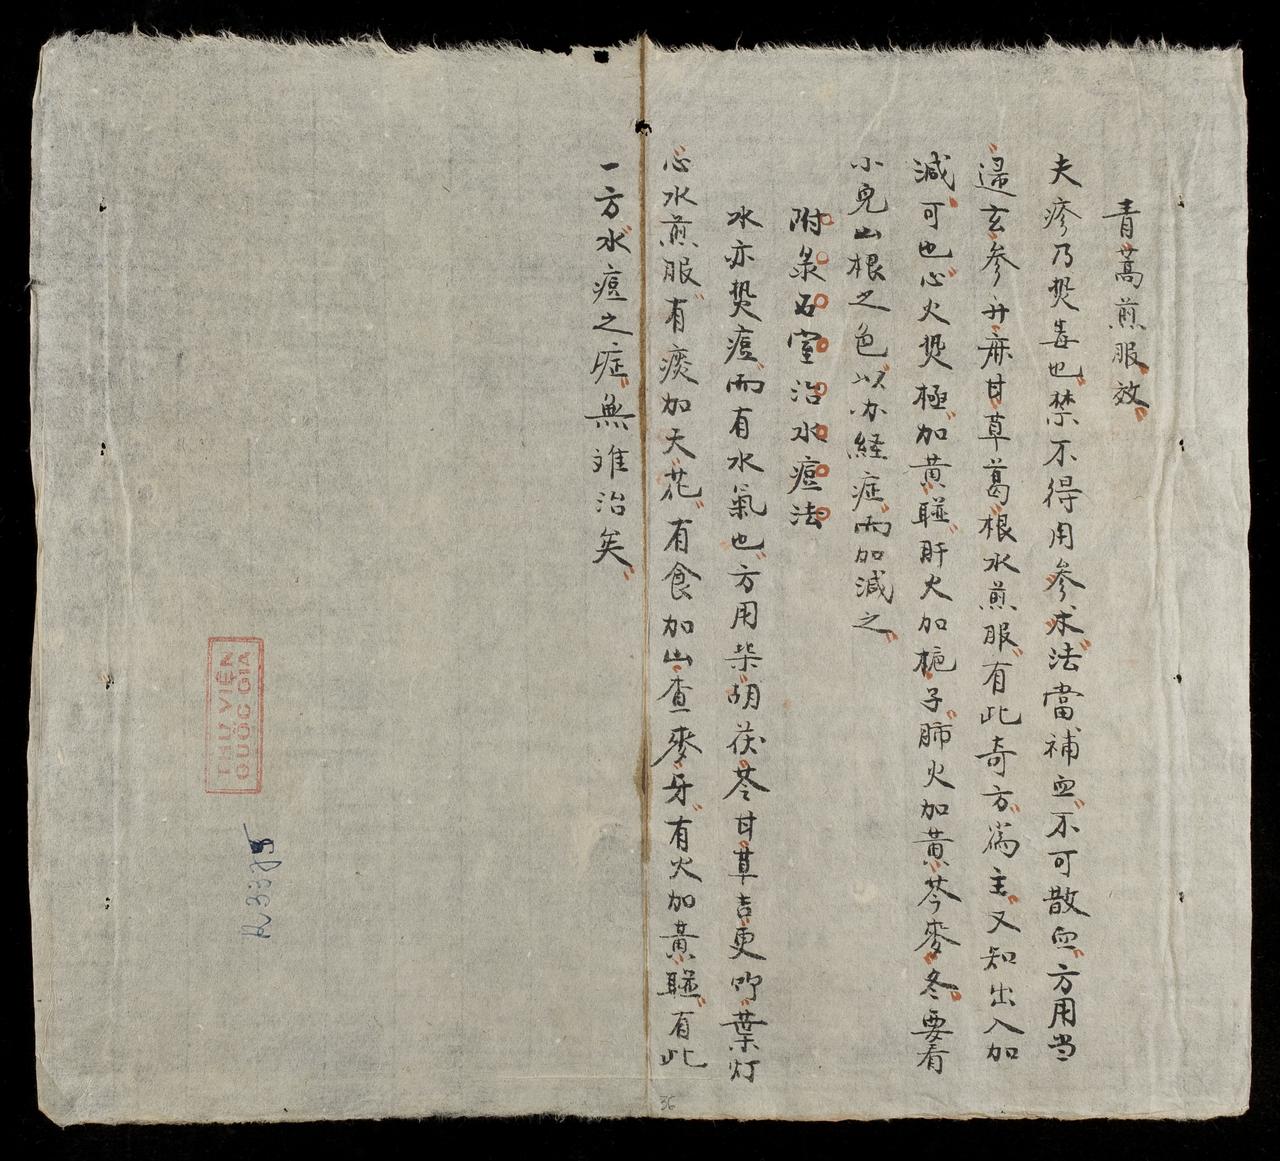 青蒿煎服效
夫疹乃㷫毒也禁不得用參术法當補血不可散血方用当
歸玄參升麻甘草葛根水煎服有此奇方為主又知出入加
減可也心火㷫極加黃聯肝火加梔子肺火加黃芩麥冬要看
小兒山根之色以亦経症而加減之
附录石室治水痘法
水亦㷫痘而有水氣也方用柴胡茯苓甘草吉更竹葉灯
心水煎服有痰加天花有食加山查麥牙有火加黃聯有此
一方水痘之症無难治矣
THƯ VIỆN
QUỐC GIA
R.3375
36